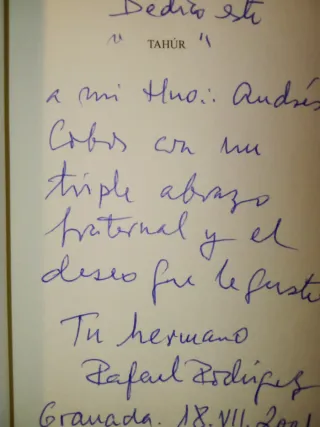 Dedico este
" TAHÚR "
a mi Hno∴ Andrés
Cobos con un
triple abrazo
fraternal y el
deseo que le guste
Tu hermano
Rafael Rodríguez
Granada. 18.VII.2001